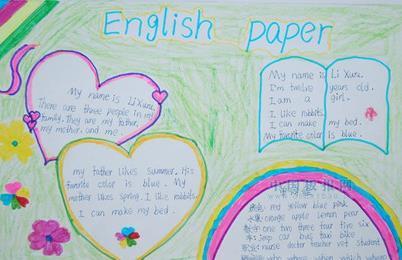 English paper
My name is Li Xuru.
There are three people in my
family. They are my father,
my mother, and me.
my father likes Summer. His
favorite color is blue. My
mother likes spring. I like rabbits.
I can make my bed.
My name is Li Xuru.
I'm twelve years old.
I am a girl.
I like rabbits
I can make my bed.
My favorite color is blue.
red yellow blue pink
水果: orange apple lemon pear
数字: one two three four five six
jeep car bus taxi bike
nurse doctor teacher vet student
who where when which where